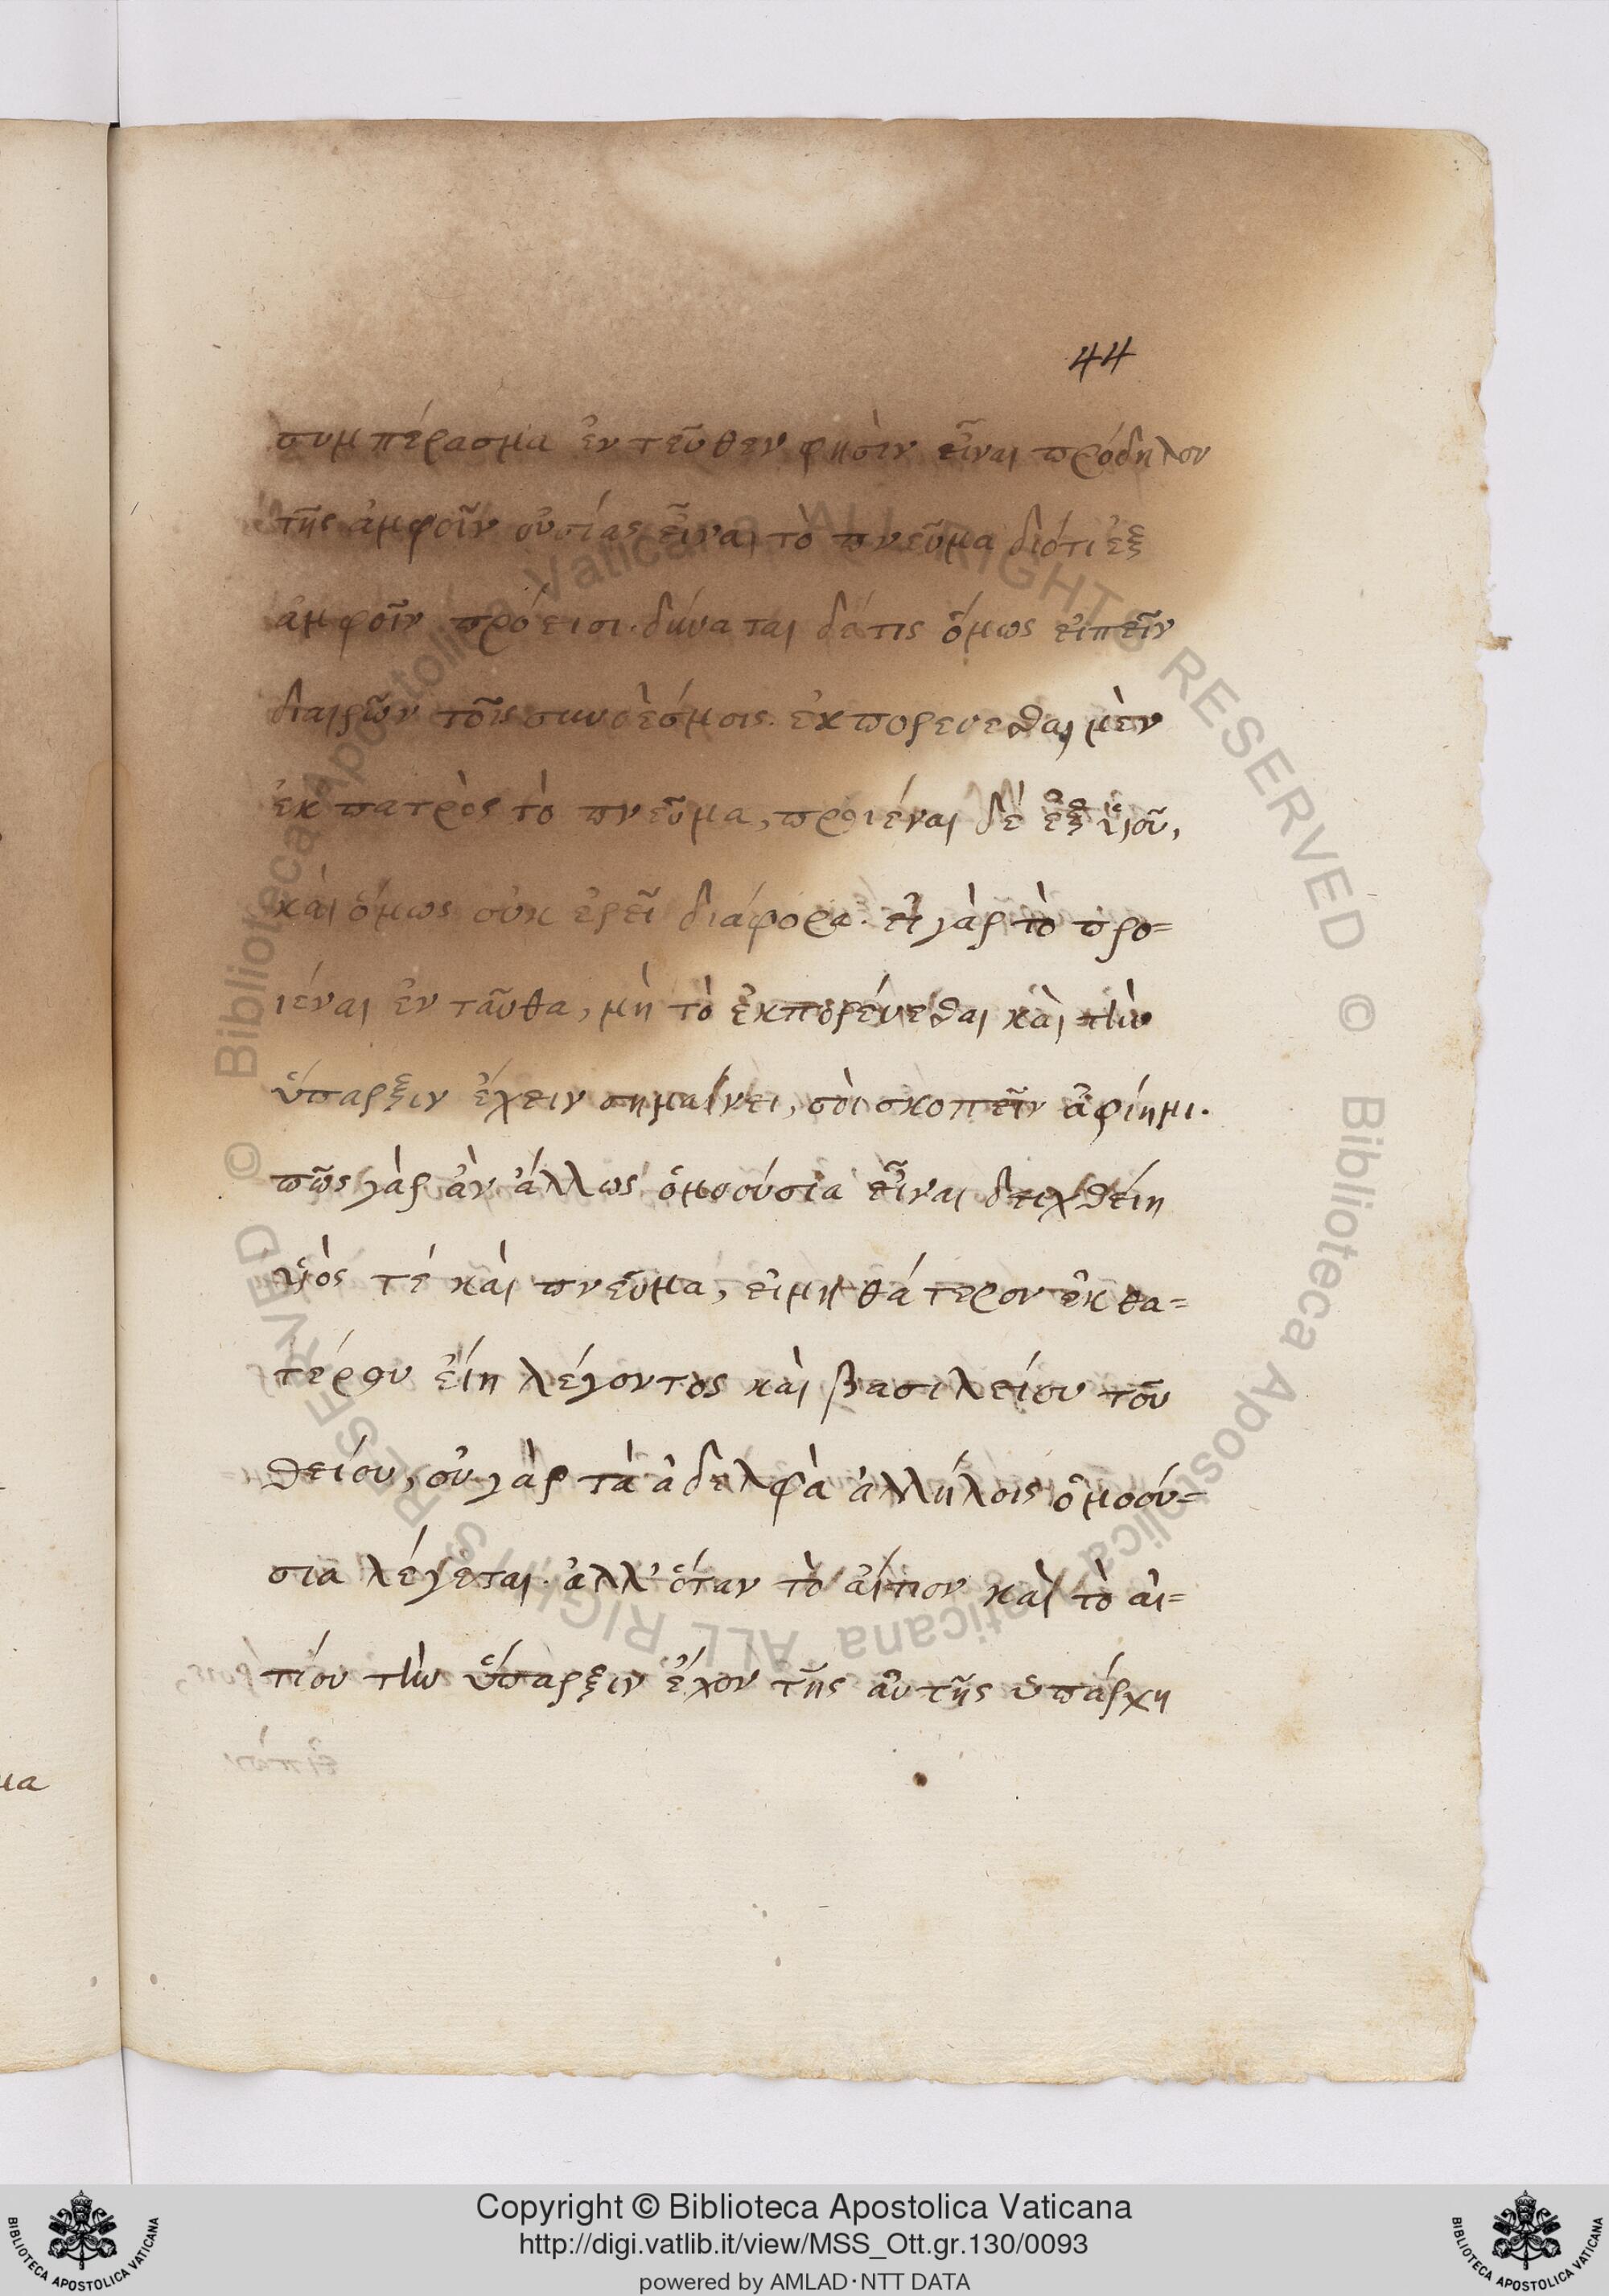 44
συμπέρασμα ἐντεῦθεν φησὶν εἶναι πρόδηλον
τῆς ἀμφοῖν οὐσίας εἶναι τὸ πνεῦμα διότι ἐξ
ἀμφοῖν πρόεισι. δύναται δέ τις ὅμως εἰπεῖν
διαιρῶν τοῖς συνδέσμοις. ἐκπορευεσθαι μὲν
ἐκ πατρὸς τὸ πνεῦμα, προιέναι δέ ἐξ υἱοῦ,
καὶ ὅμως οὐκ ἐρεῖ διάφορα. εἰ γὰρ τὸ προ=
ιέναι ἐνταῦθα, μὴ τὸ ἐκπορέυεσθαι καὶ τὴν
ὕπαρξιν ἔχειν σημαίνει, σὸι σκοπεῖν ἀφίημι.
πῶς γὰρ ἀν ἄλλως ὁμοούσια εἶναι δειχθείη
υἱὸς τέ καὶ πνεῦμα, εἰμὴ θάτερον ἐκ θα=
τέρου εἴη λέγοντος καὶ βασιλείου τοῦ
θείου, οὐ γὰρ τὰ ἀδελφὰ ἀλλήλοις ὁμοού=
σια λέγεται. ἀλλ' ὅταν τὸ αἴτιον καὶ τὸ αἰ=
τίου τὴν ὕπαρξιν ἔχον τῆς αὐτῆς ὑπάρχη
μα
Copyright © Biblioteca Apostolica Vaticana
http://digi.vatlib.it/view/MSS_Ott.gr.130/0093
powered by AMLAD·NTT DATA
BIBLIOTECA APOSTOLICA VATICANA
BIBLIOTECA APOSTOLICA VATICANA
© Biblioteca Apostolica Vaticana ALL RIGHTS RESERVED
© Biblioteca Apostolica Vaticana ALL RIGHTS RESERVED